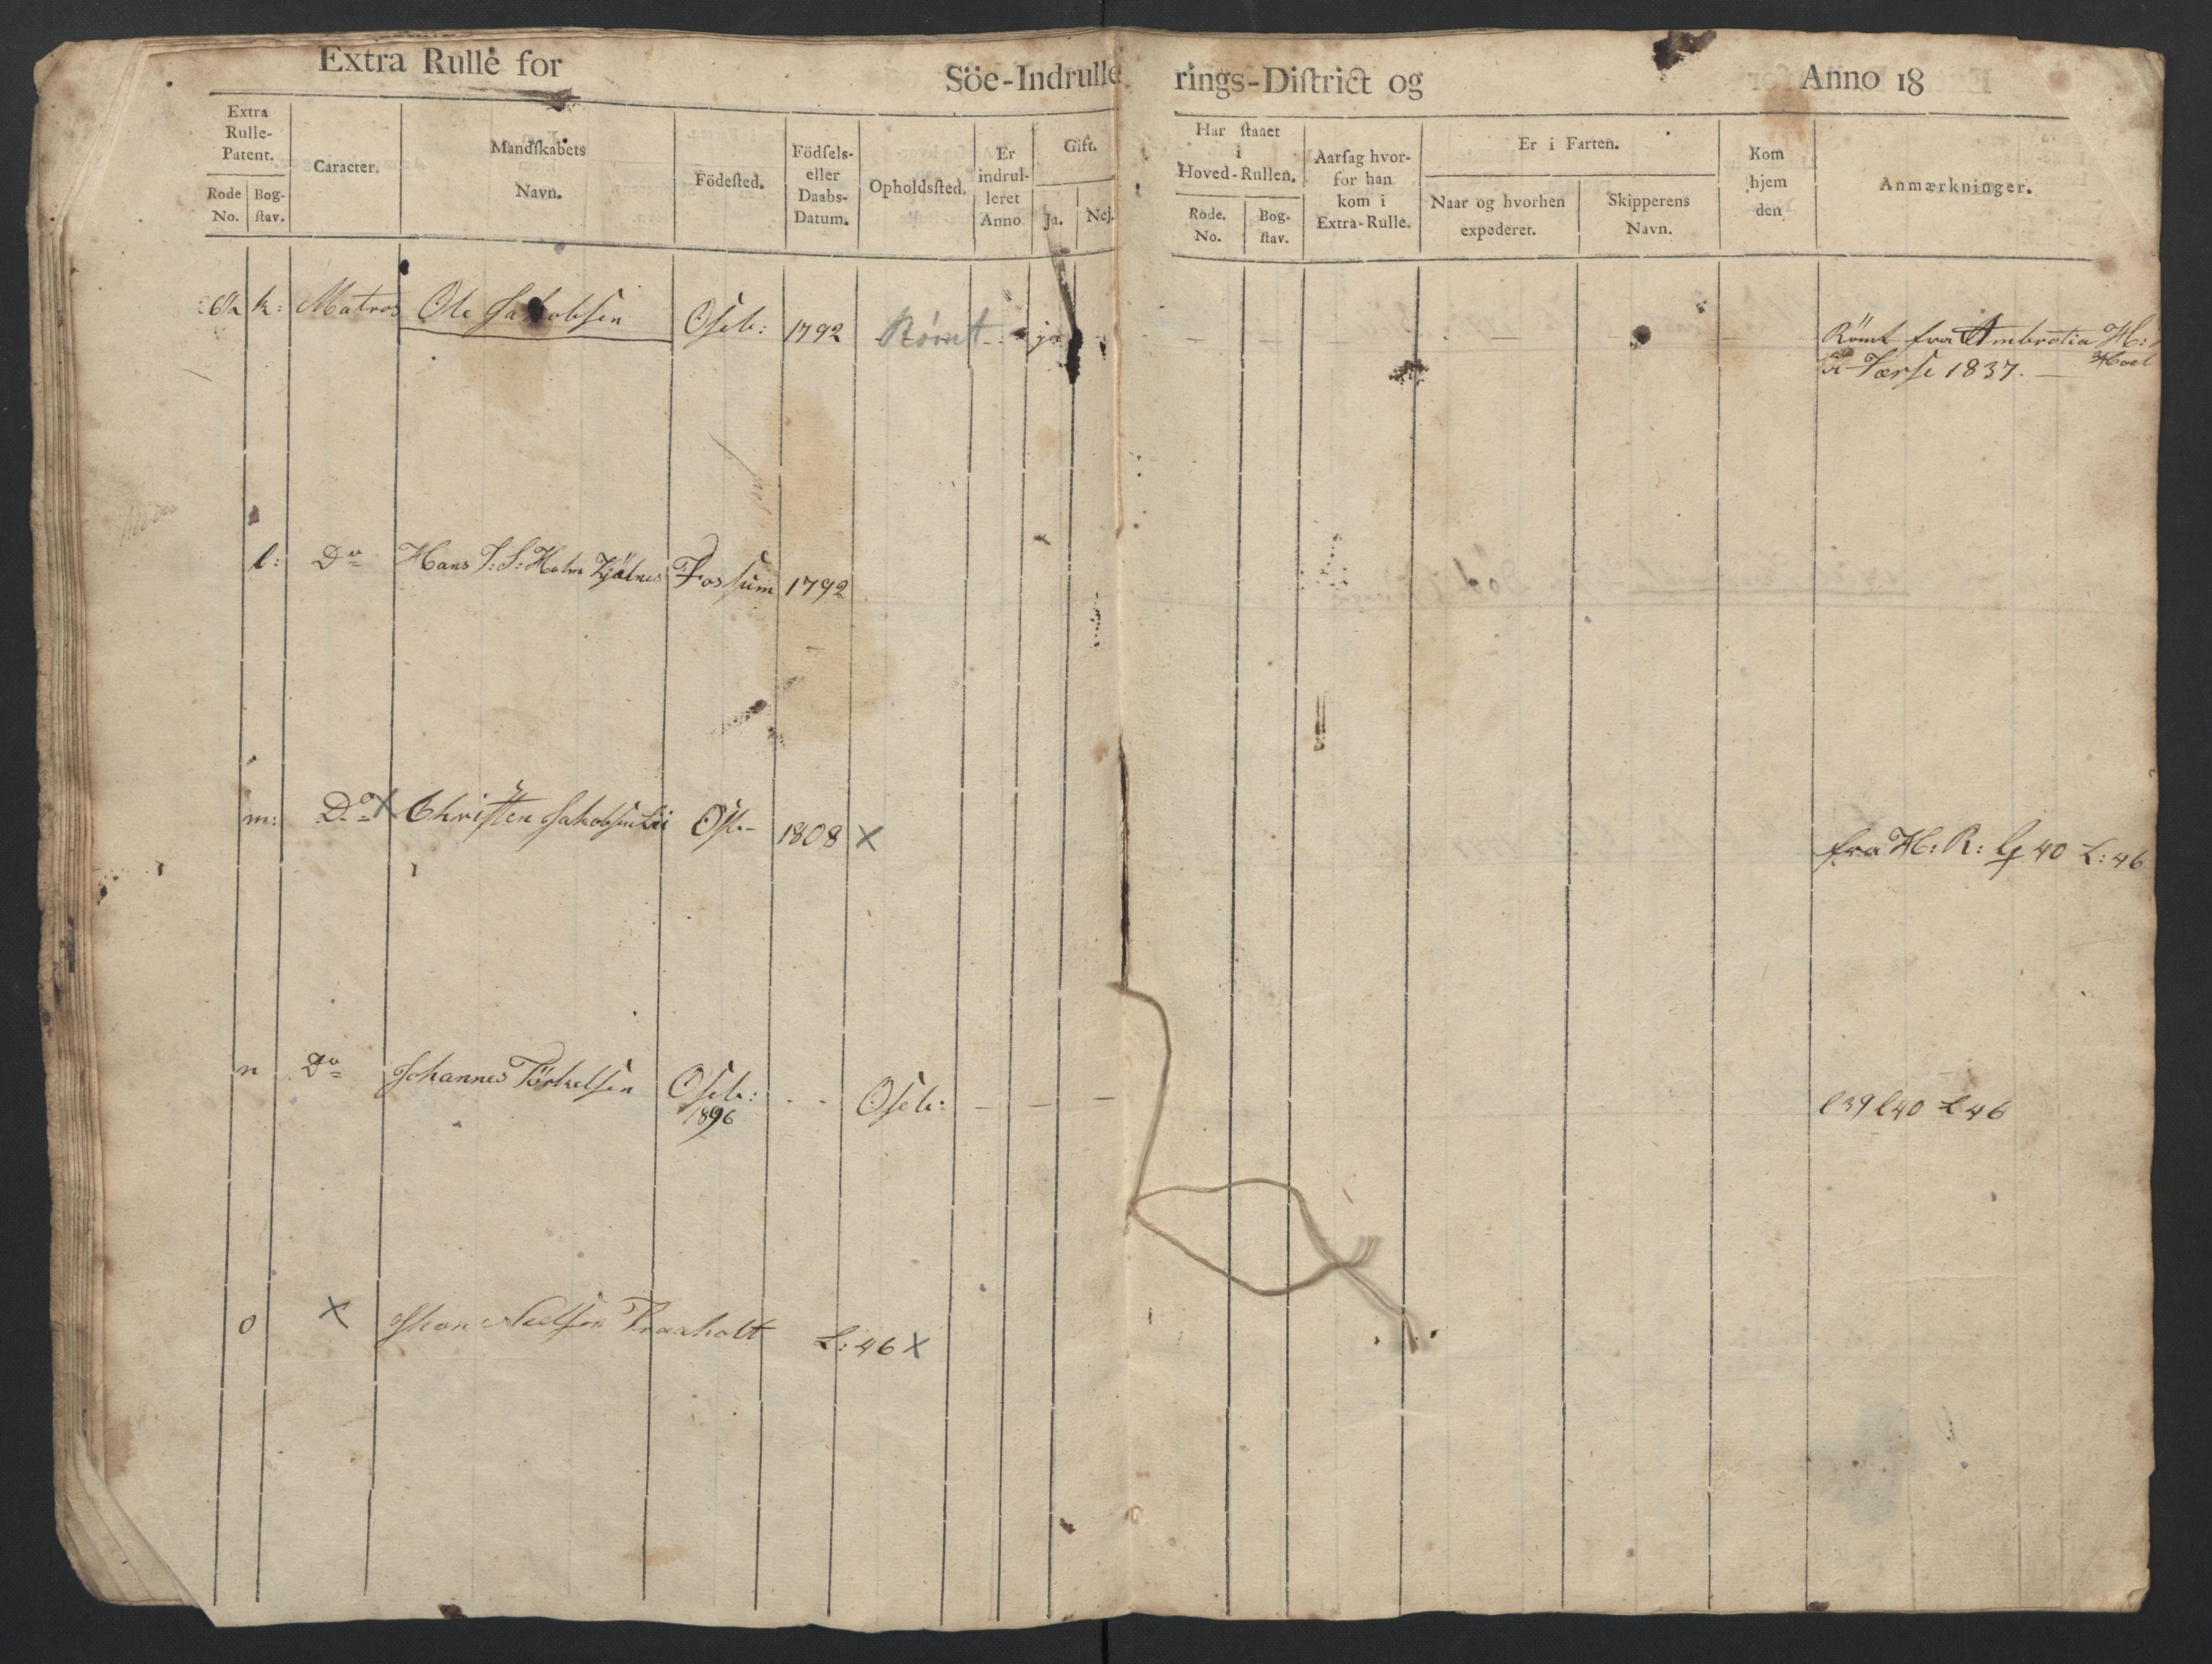 Extra Rulle for Söe-Indrulle rings-District og Anno 18
Extra Rulle-Patent.
Rode No. Bog-stav.
Caracter.
Mandskabets Navn.
Födested.
Födsels- eller Daabs-Datum.
Opholdssted.
Er indrul-leret Anno
Gift.
Ja. Nej.
Har staaet i Hoved-Rullen.
Rode. No. Bog-stav.
Aarsag hvor-for han kom i Extra-Rulle.
Er i Farten.
Naar og hvorhen expederet.
Skipperens Navn.
Kom hjem den
Anmærkninger.
k: Matros Ole Jakobsen Oseb: 1792 Rømt ja
Römt fra Ambrotia H:
1837.
l: Do Hans J: S: Holm Fossum 1792
m: Do X Christen Jakobsen 1808 X fra H: R: 40 L: 46
n Do Johannes Törkelsen Oseb: Oseb: l39 l40 L46
1896
o X Nielsen Traaholt L: 46 X